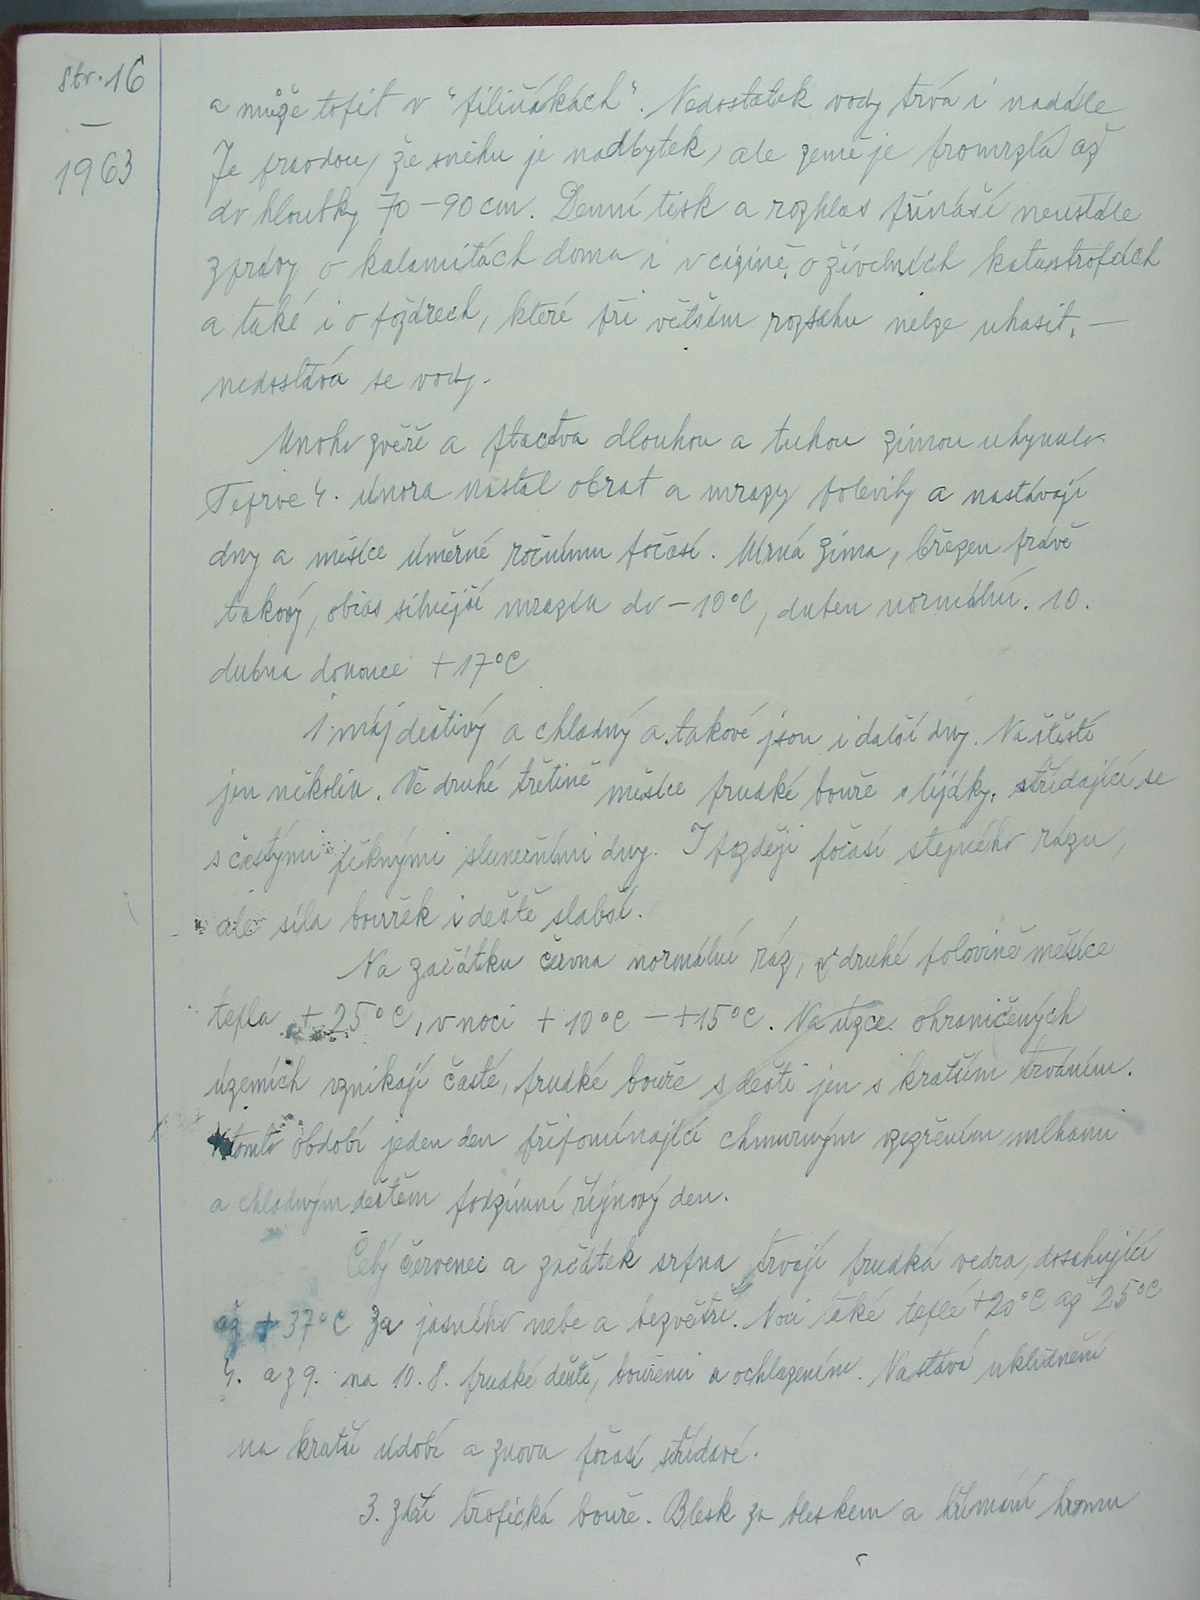 Str. 16
—
1963
a může topit v "filiňákách". Nedostatek vody trvá i nadále
Je pravdou, že sněhu je nadbytek, ale země je promrzlá až
do hloubky 70 – 90 cm. Denní tisk a rozhlas přináší neustále
zprávy o kalamitách doma i v cizině, o živelních katastrofách
a také i o požárech, které při větším rozsahu nelze uhasit, —
nedostává se vody.
Mnoho zvěře a ptactva dlouhou a tuhou zimou uhynulo
Teprve 4. února nastal obrat a mrazy polevily a nastávají
dny a měsíce úměrné ročnímu počasí. Mírná zima, březen právě
takový, občas silnější mrazík do –10°C, duben normální. 10.
dubna dokonce +17°C
1. máj deštivý a chladný a takové jsou i další dny. Naštěstí
jen několik. Ve druhé třetině měsíce prudké bouře s lijáky, střídající se
s častými pěknými slunečními dny. I později počasí stejného rázu,
ale síla bouřek i deště slabší.
Na začátku června normální ráz, v druhé polovině měsíce
tepla +25°C, v noci +10°C – +15°C. Na úzce ohraničených
územích vznikají časté, prudké bouře s dešti jen s kratším trváním.
V tomto období jeden den připomínající chmurným vezřením mlhami
a chladným deštěm podzimní říjnový den.
Celý červenec a začátek srpna trvají prudká vedra, dosahující
až +37°C za jasného nebe a bezvětří. Noci také teplé +20°C až 25°C
4. a z 9. na 10. 8. prudké deště, bouřemi a ochlazením. Nastává uklidnění
na kratší údobí a znovu počasí střídavé.
3. září tropická bouře. Blesk za bleskem a hřímání hromu